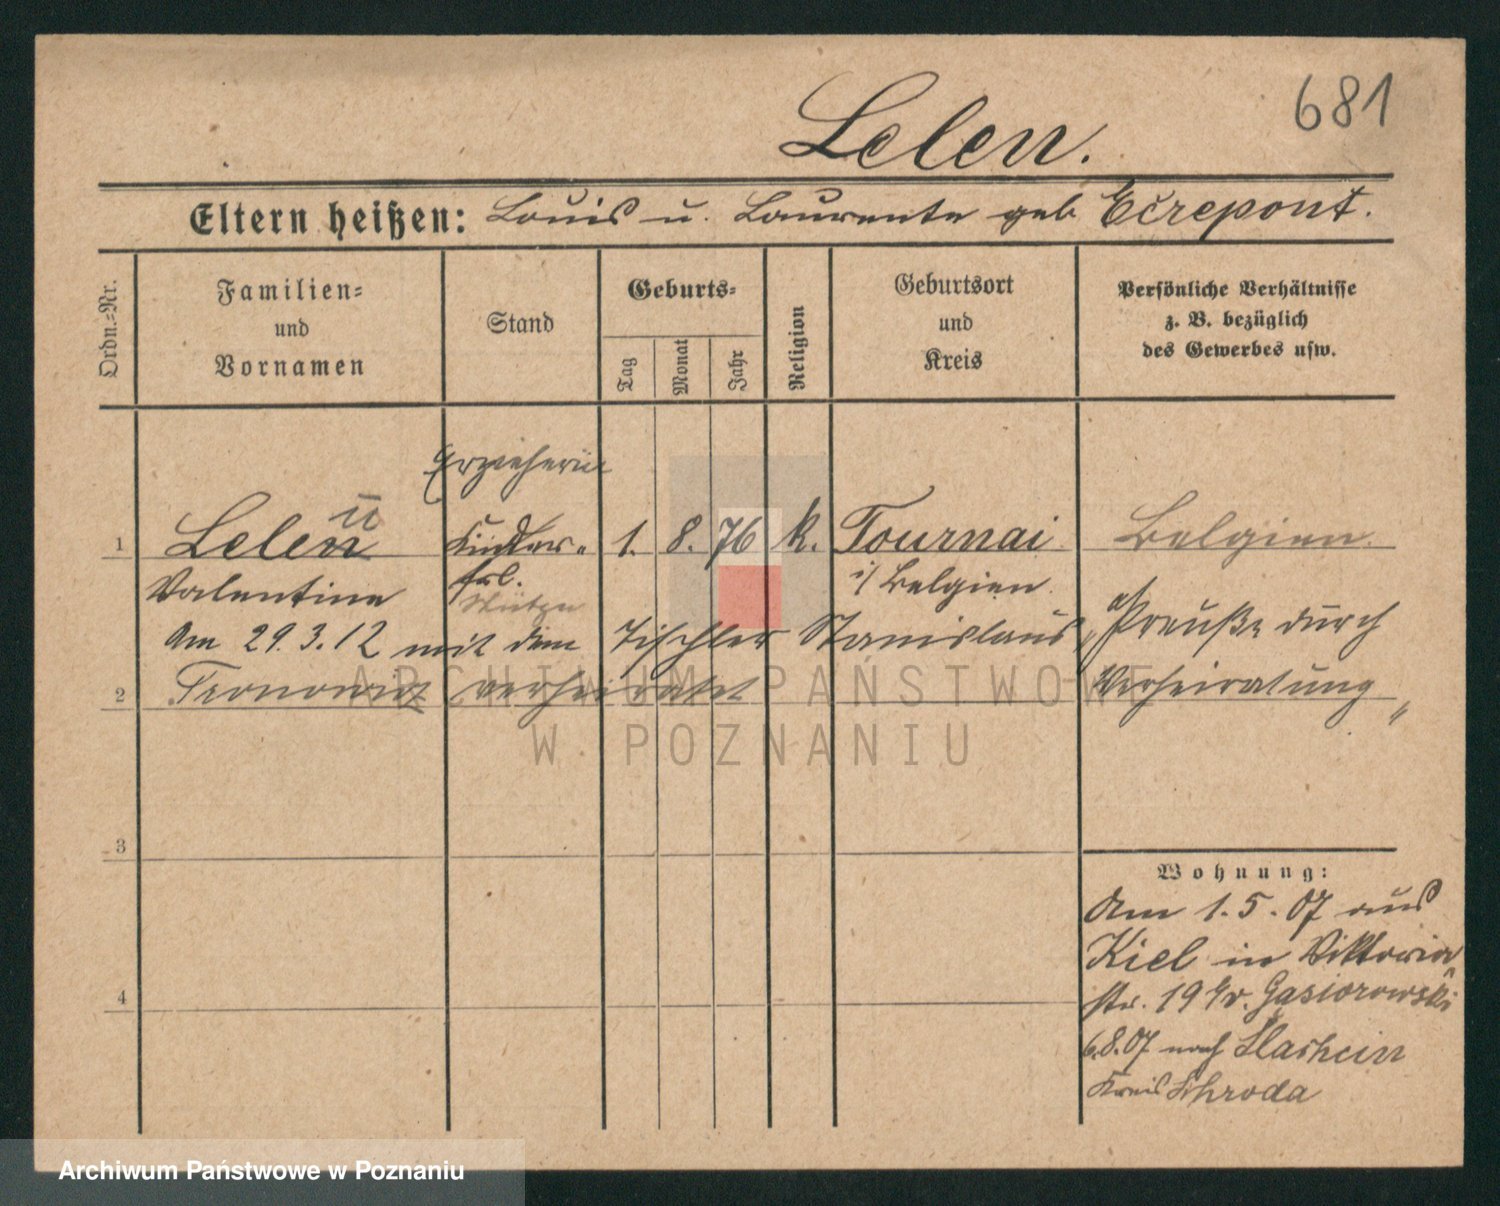 681
Lelen.
Eltern heißen: Louis u. Laurente geb. Ecrepont.
Ordn.=Nr.
Familien=
und
Vornamen
Stand
Geburts=
Tag
Monat
Jahr
Religion
Geburtsort
und
Kreis
Persönliche Verhältnisse
z. B. bezüglich
des Gewerbes usw.
Erzieherin
1 Lelen Kinder= 1. 8. 76 k. Tournai Belgien.
u
Valentine frl. i/ Belgien.
Stütze
Am 29.3.12 mit dem Tischler Stanislaus "Preuße durch
2 verheiratet Verheiratung"
3
4
Wohnung:
Am 1.5.07 aus
Kiel in Viktoria
str. 19 b/v. Gąsiorowski
6.8.07 nach
Kreis Schroda
ARCHIWUM PAŃSTWOWE
W POZNANIU
Archiwum Państwowe w Poznaniu